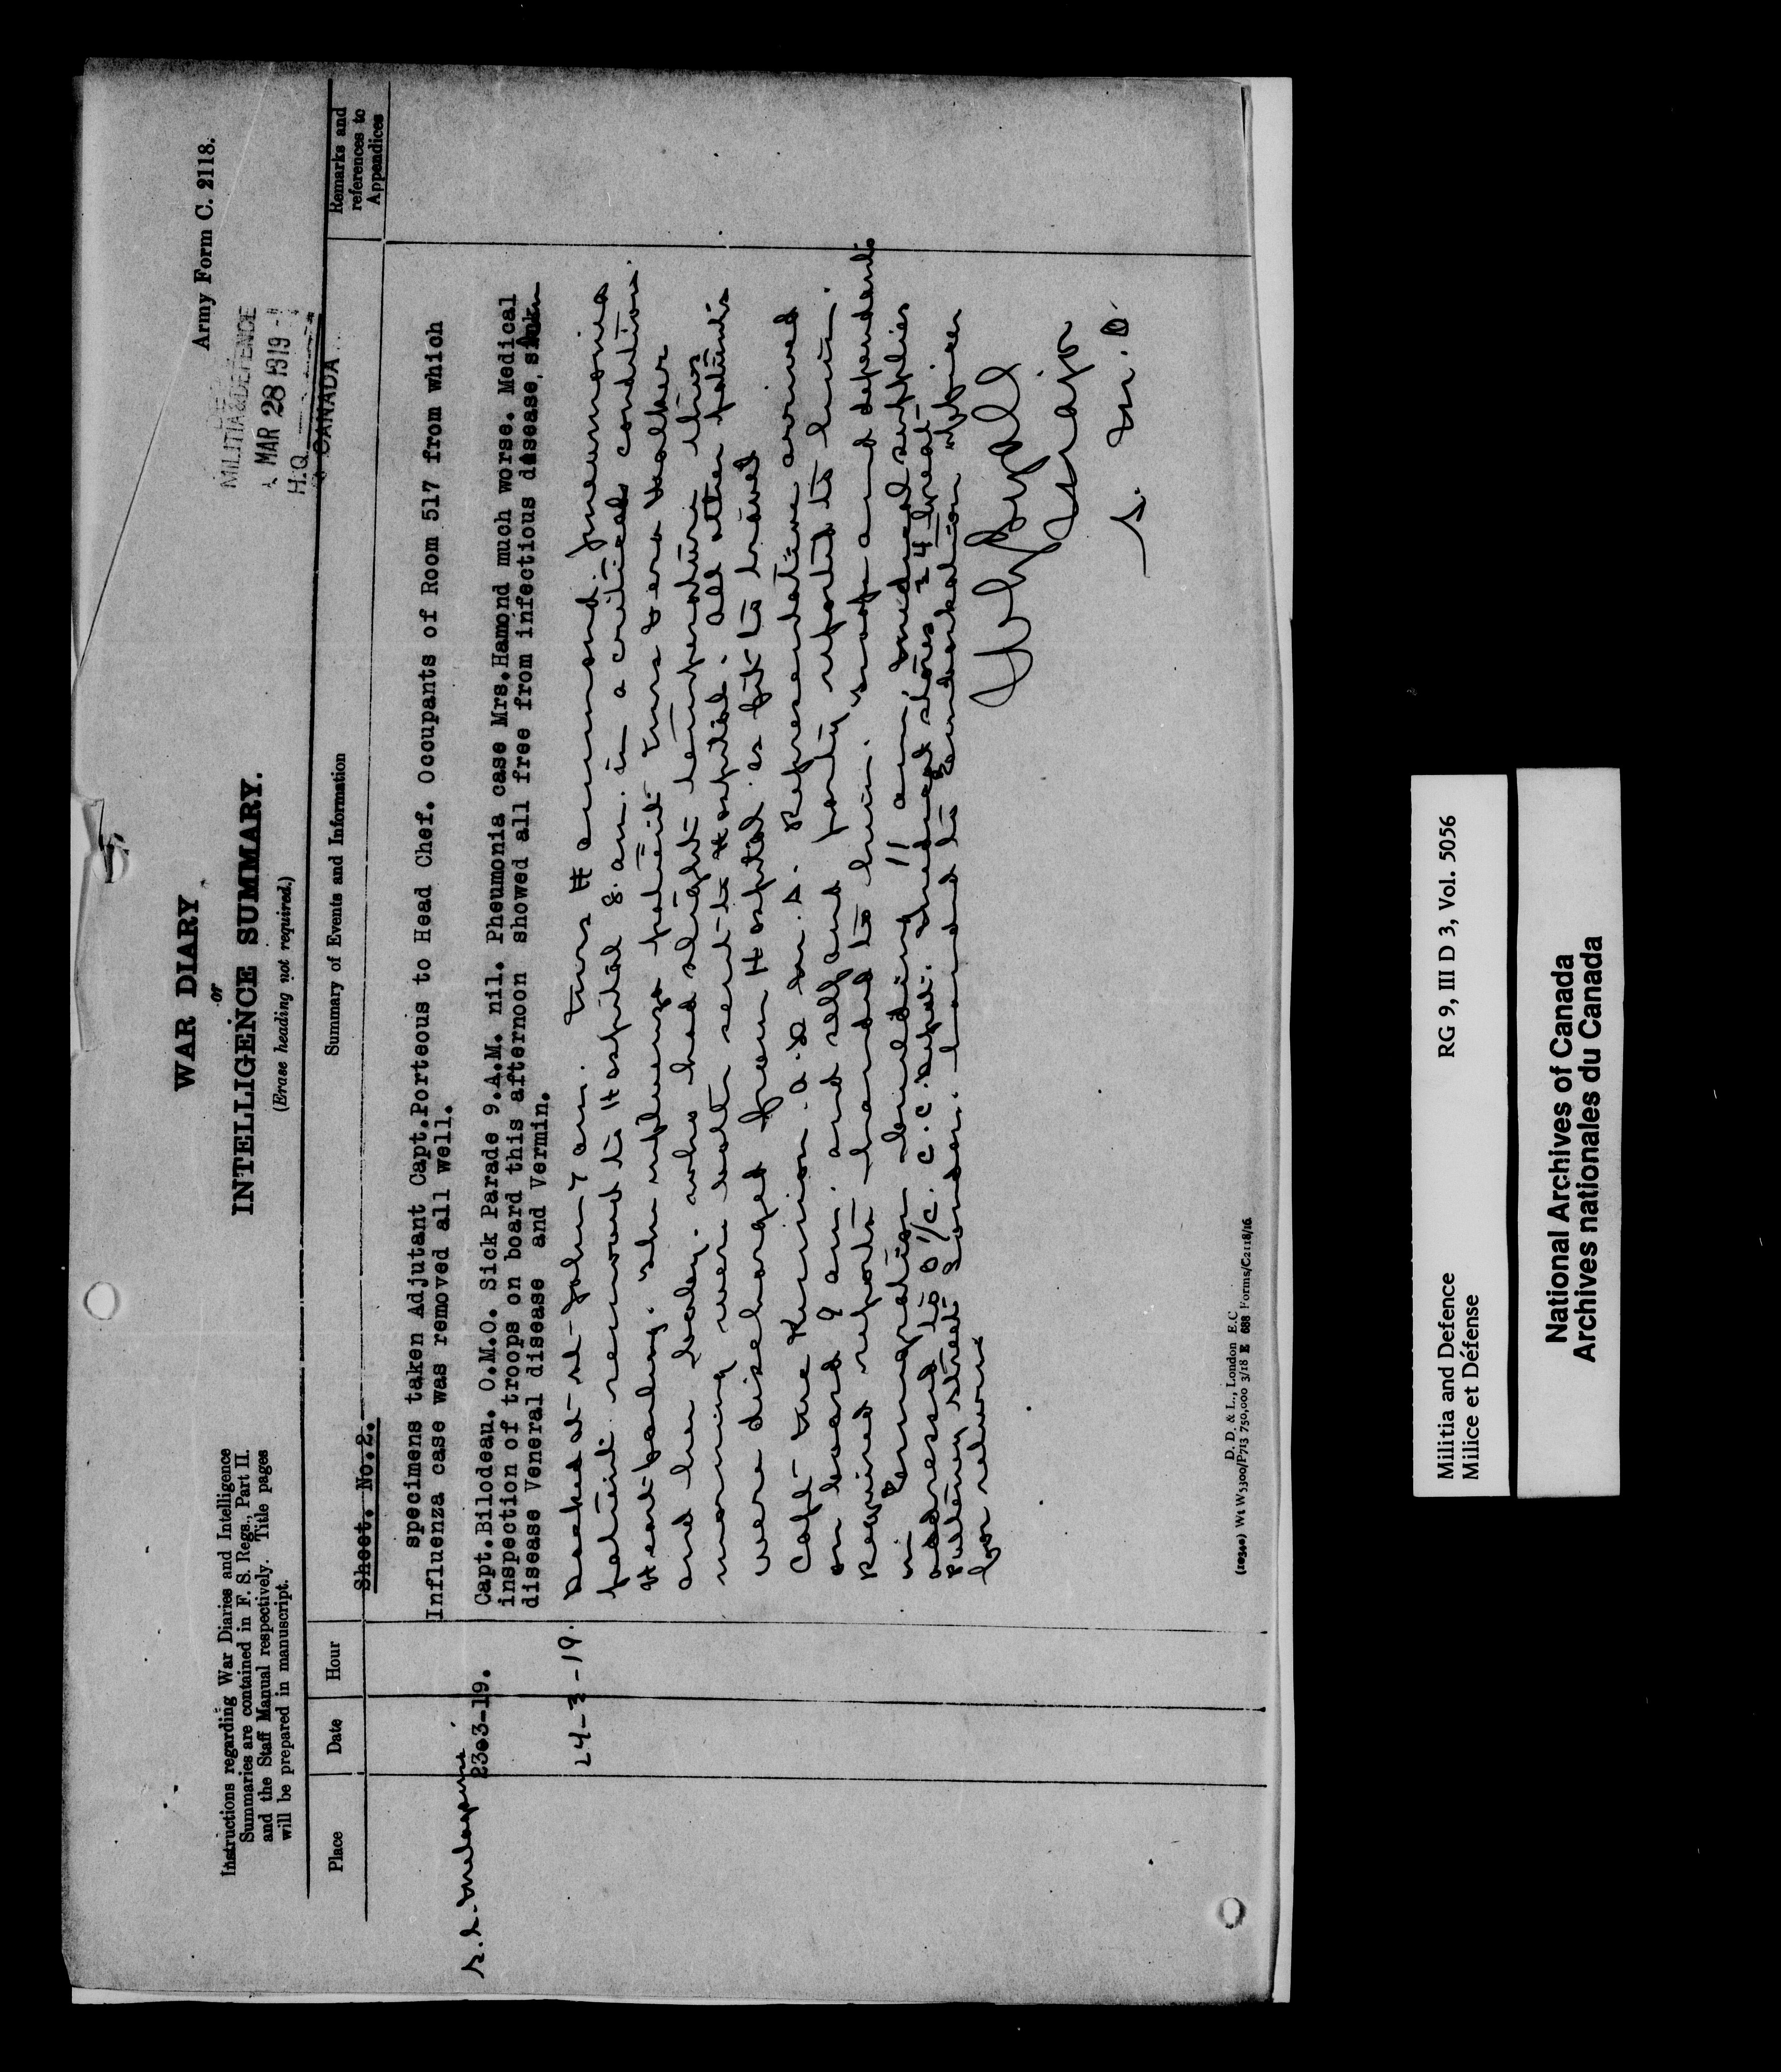 Army Form C. 2118.
WAR DIARY
or
INTELLIGENCE SUMMARY.
(Erase heading not required.)
Instructions regarding War Diaries and Intelligence
Summaries are contained in F. S. Regs., Part II.
and the Staff Manual respectively. Title pages
will be prepared in manuscript.
MILITIA & DEFENCE
MAR 28 1919
H.Q.
CANADA
Place
Date
Hour
Summary of Events and Information
Remarks and
references to
Appendices
Sheet. No.2.
specimens taken Adjutant Capt.Porteous to Head Chef. Occupants of Room 517 from which
Influenza case was removed all well.
S.S. Melagama.
23-3-19.
Capt.Bilodeau. O.M.O. Sick Parade 9.A.M. nil. Pneumonia case Mrs.Hamond much worse. Medical
inspection of troops on board this afternoon showed all free from infectious disease, skin
disease Veneral disease and Vermin.
24-3-19.
Docked at St John 7 am. Mrs Hammond. Pneumonia
patient removed to Hospital 8. am. in a critical condition.
Heart failing. The influenza patient Mrs Walker
and her baby. who had slight temperature this
morning were both sent to Hospital. All other patients
were discharged from Hospital as fit to travel
Capt Rennison. A.D.M.S. Representative arrived
on board 9 am. and self and party reported to him.
Required reports handed to him. Troops and dependents
in Immigration building 11 am. Medical supplies
addressed to O i/c. C.C. Dept. Medical stores 24 Great
Pulteney Street London. hand to Embarkation Officer
for return
Major
S.M.O.
D. D. & L., London E.C
(10340) Wt W5300/P713 750,000 3/18 E 688 Forms/C2118/16
Militia and Defence
Milice et Défense
RG 9, III D 3, Vol. 5056
National Archives of Canada
Archives nationales du Canada